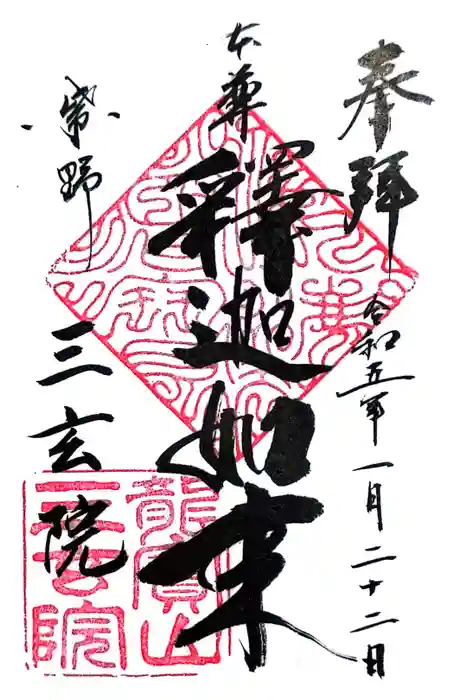 奉拝
令和五年一月二十二日
本尊
釋迦如来
紫野
三玄院
龍寶山
三玄院